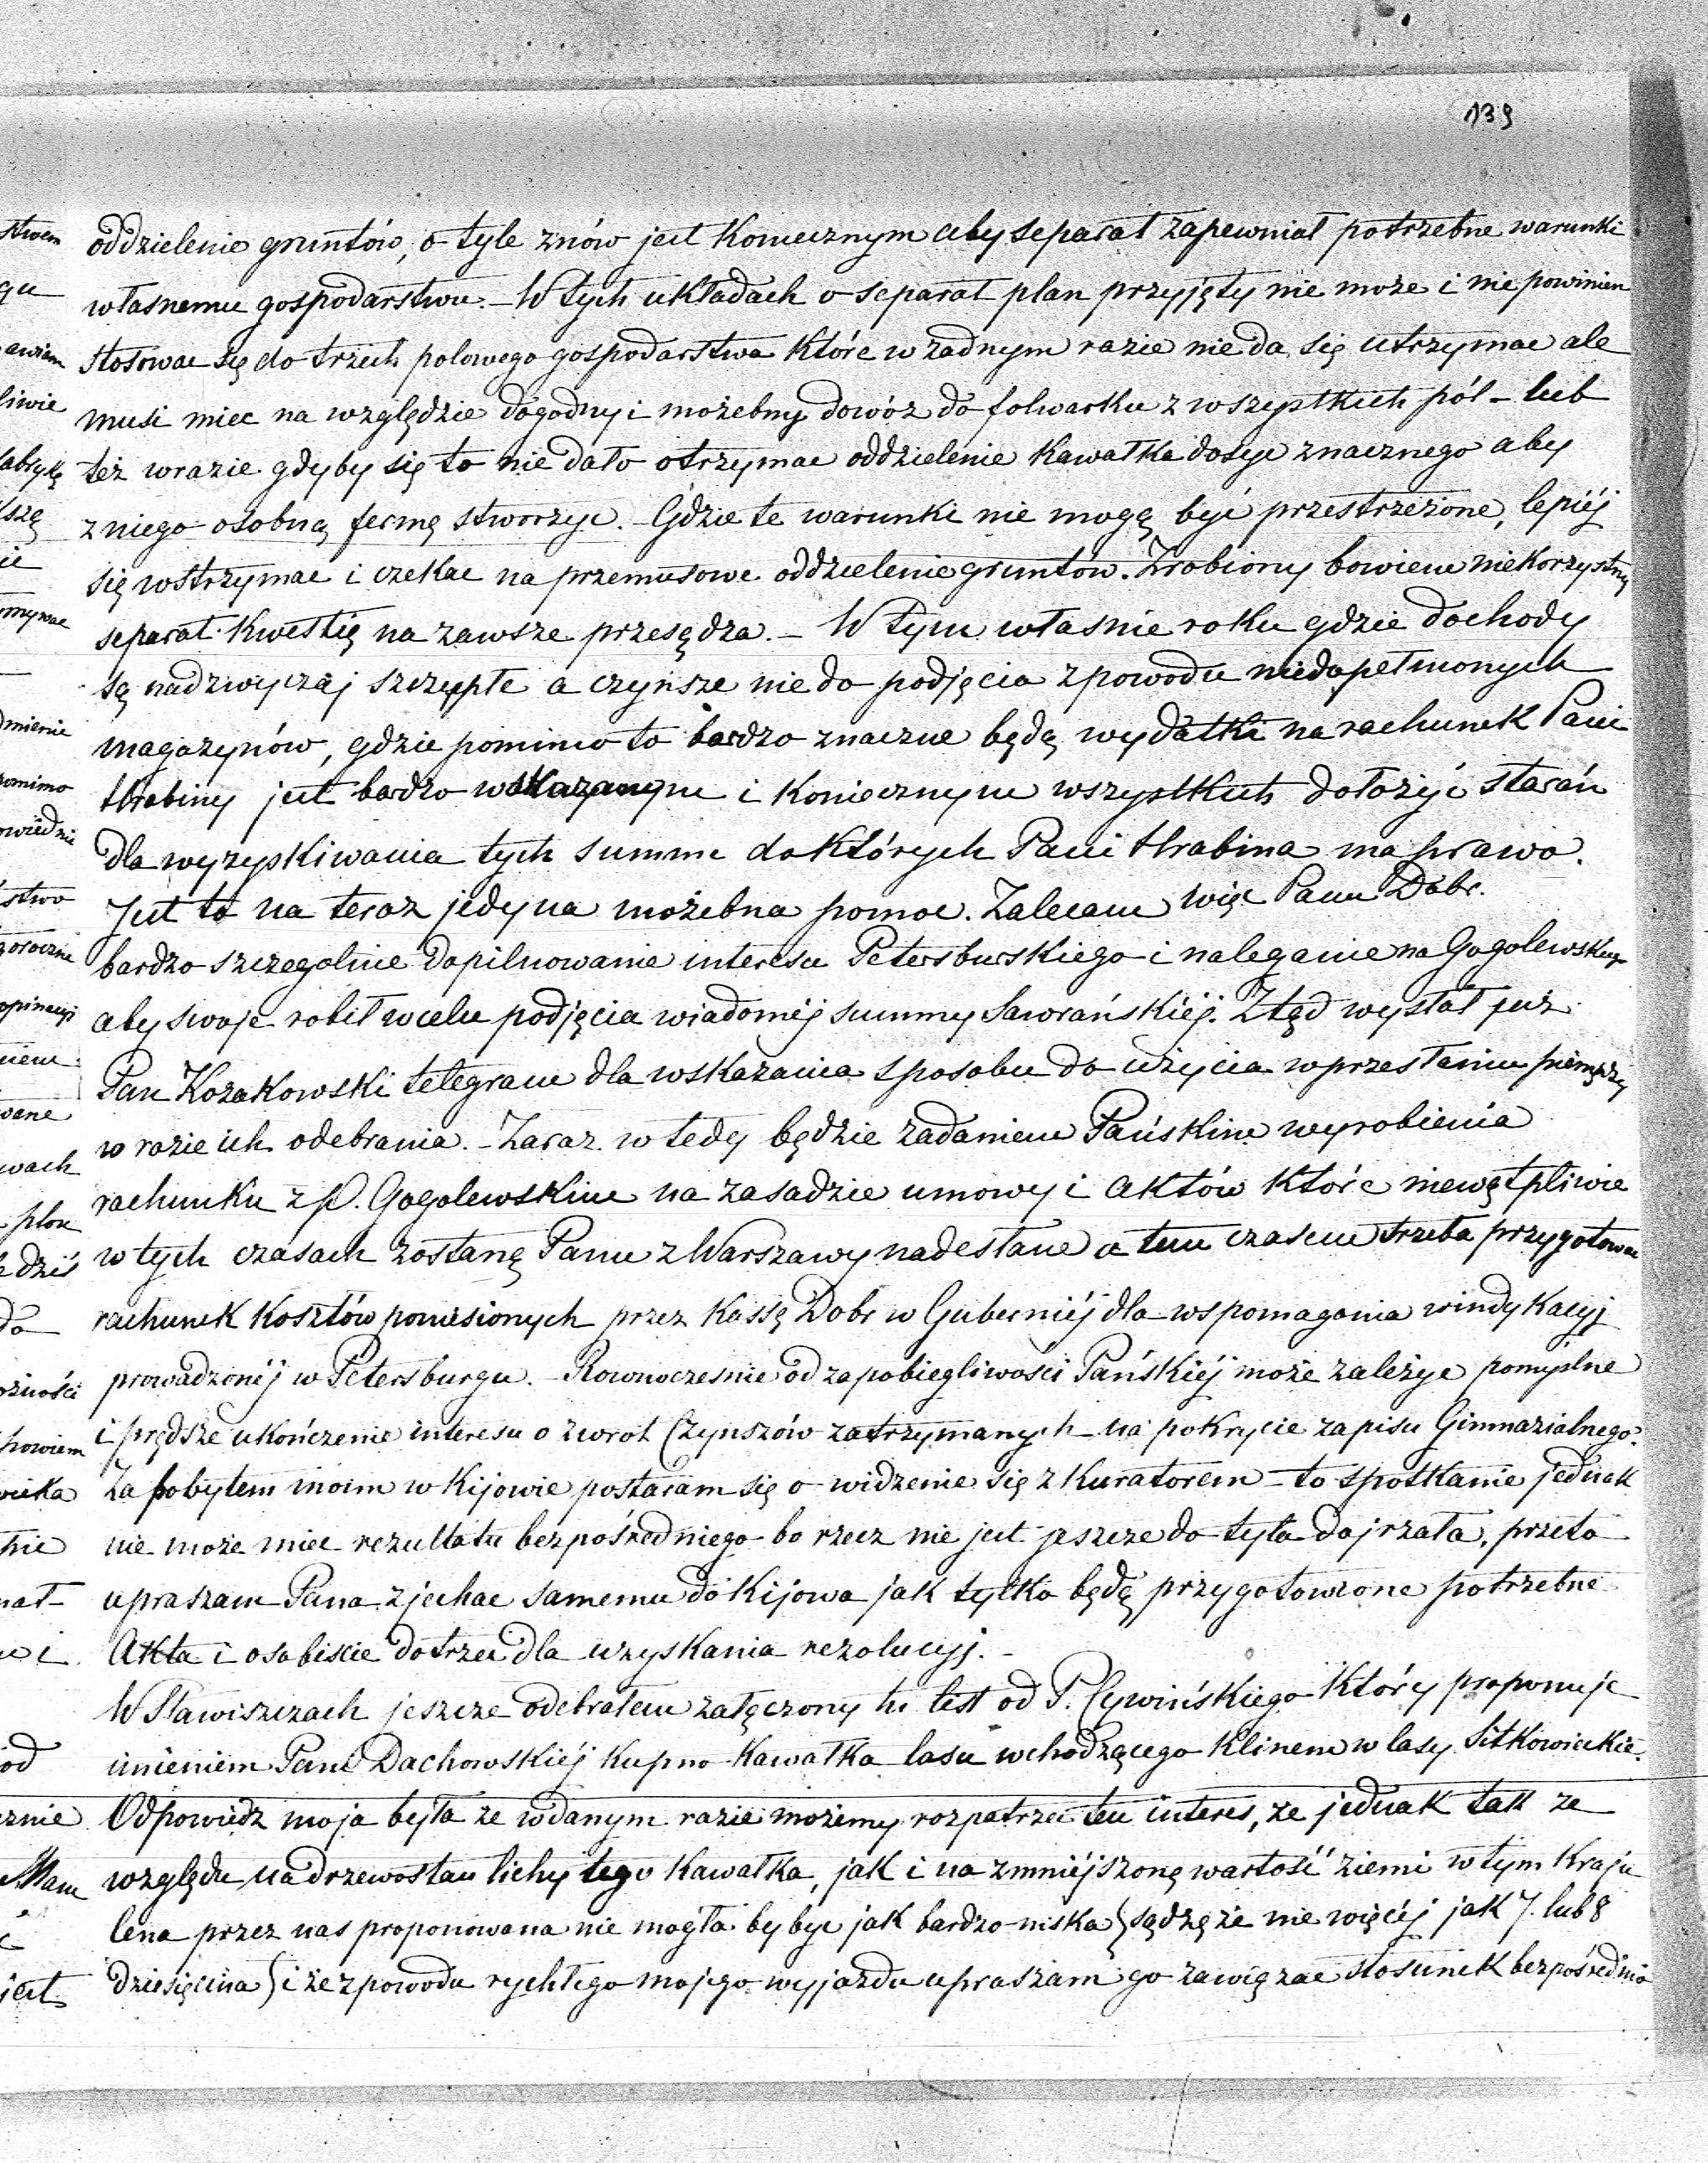 139
oddzielenie gruntów, o tyle znów jest koniecznym aby separat zapewniał potrzebne warunki
własnemu gospodarstwu. – W tych układach o separat plan przyjęty nie może i nie powinien
stosowac się do trzech polowego gospodarstwa które w żadnym razie nie da się utrzymac ale
musi miec na względzie dogodny i możebny dowóz do folwarku z wszystkich pól – lub
też w razie gdyby się to nie dało otrzymac oddzielenie kawałka dosyc znacznego aby
z niego osobną fermę stworzyc. – Gdzie te warunki nie mogą być przestrzeżone, lepiéj
się wstrzymac i czekac na przemusowe oddzielenie gruntów. Zrobiony bowiem niekorzystny
separat kwestię na zawsze przesądza. – W tym własnie roku gdzie dochody
są nadzwyczaj szczypłe a czynsze nie do podjęcia z powodu niedopełnionych
magazynów, gdzie pomimo to bardzo znaczne będą wydatki na rachunek Pani
Hrabiny jest bardzo wskazanym i koniecznym wszystkich dołożyć starań
dla wyzyskiwania tych summ do których Pani Hrabina ma prawo.
Jest to na teraz jedyna możebna pomoc. Zalecam więc Panu Dobr.
bardzo szczegolnie dopilnowanie interesu Petersburskiego i naleganie na Gogolewskiego
aby swoje robił w celu podjęcia wiadoméj summy Sawrańskiéj. Ztąd wysłał już
Pan Kozakowski telegram dla wskazania sposobu do użycia w przesłaniu pieniędzy
w razie ich odebrania. – Zaraz wtedy będzie zadaniem Pańskim wyrobienia
rachunku z p. Gogolewskim na zasadzie umowy i aktów które niewątpliwie
w tych czasach zostaną Panu z Warszawy nadesłane a tem czasem trzeba przygotowac
rachunek kosztów poniesionych przez kassę Dobr w Guberniéj dla wspomagania windykacyj
prowadzonéj w Petersburgu. – Rownoczesnie od zapobiegliwości Pańskiéj może zależyc pomyślne
i prędsze ukończenie interesu o zwrot Czynszów zatrzymanych na pokrycie zapisu Gimnazialnego.
Za pobytem moim w Kijowie postaram się o widzenie się z Kuratorem – to spotkanie jednak
nie może miec rezultatu bezpośredniego bo rzecz nie jest jeszcze do tyła dojrzała, przeto
upraszam Pana zjechac samemu do Kijowa jak tylko będą przygotowzone potrzebne
Akta i osobiscie dotrzec dla uzyskania rezolucyj. –
W Stawiszczach jeszcze odebrałem załączony tu list od P. Cywińskiego który proponuje
imieniem Pani Dachowskiéj kupno kawałka lasu wchodzącego klinem w lasy Sitkowieckie.
Odpowiedz moja była ze w danym razie możemy rozpatrzec ten interes, ze jednak tak ze
względu na drzewostan lichy tego kawałka, jak i na zmniéjszoną wartość ziemi w tym kraju
Cena przez nas proponowana nie mogła by byc jak bardzo niska (sądzę że nie więcéj jak 7. lub 8
dziesięcina) i że z powodu rychłego mojego wyjazdu upraszam go zawiązac stosunek bezpośrednio